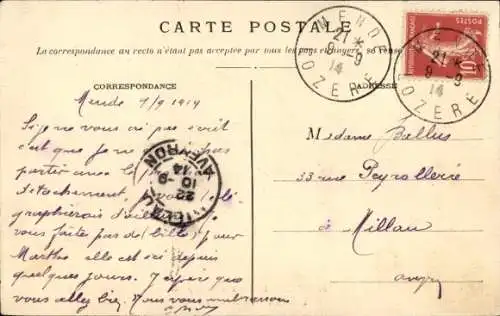 CARTE POSTALE
La correspondance au recto n'étant pas acceptée par tous les pays étrangers, se rense
CORRESPONDANCE
ADRESSE
MENDE
21 *
9 -9
14
LOZERE
POSTES
10
MENDE
21 *
9 -9
14
LOZERE
Mende 1/9 1914
Si je ne vous ai pas écrit
c'est que je ne pas
partir avec le
détachement, vous télé
graphierais d'ailleurs
vous faites pas de (bile) pour
Marthe elle est ici depuis
quelques jours. J'espère que
vous allez bien. Nous vous embrassons
MILLAU
22
10 -9
14
AVEYRON
Madame Ballus
33 rue Peyrollerie
à Millau